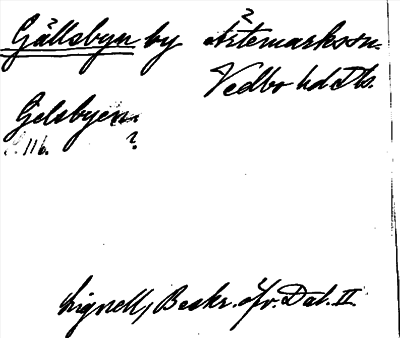 Gällsbyn by Ärtemarks sn.
Vedbo hd Ds.
Gelsbyen
116. ?
Lignell, Beskr. öfv. Dal. II.